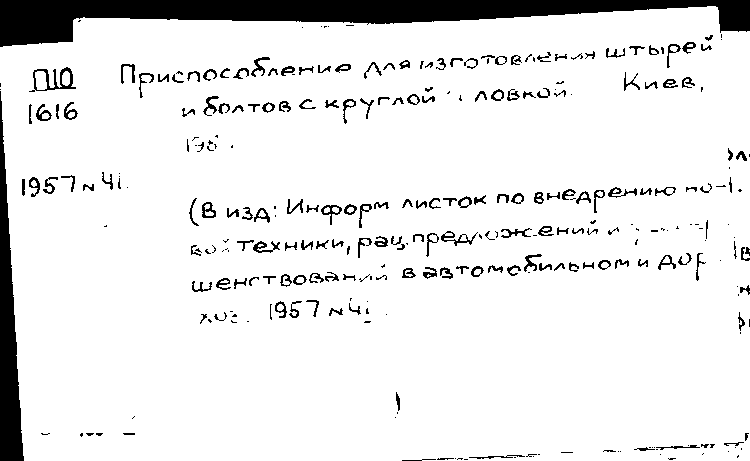 П10 Приспособление для изготовления штырей
1616 и болтов с круглой ловкой. Киев,
1957 N 41.
(В изд: Информ листок по внедрению но-
вой техники, рац. предложений и
шенствований в автомобильном и дор.
хоз. 1957 N 41
)